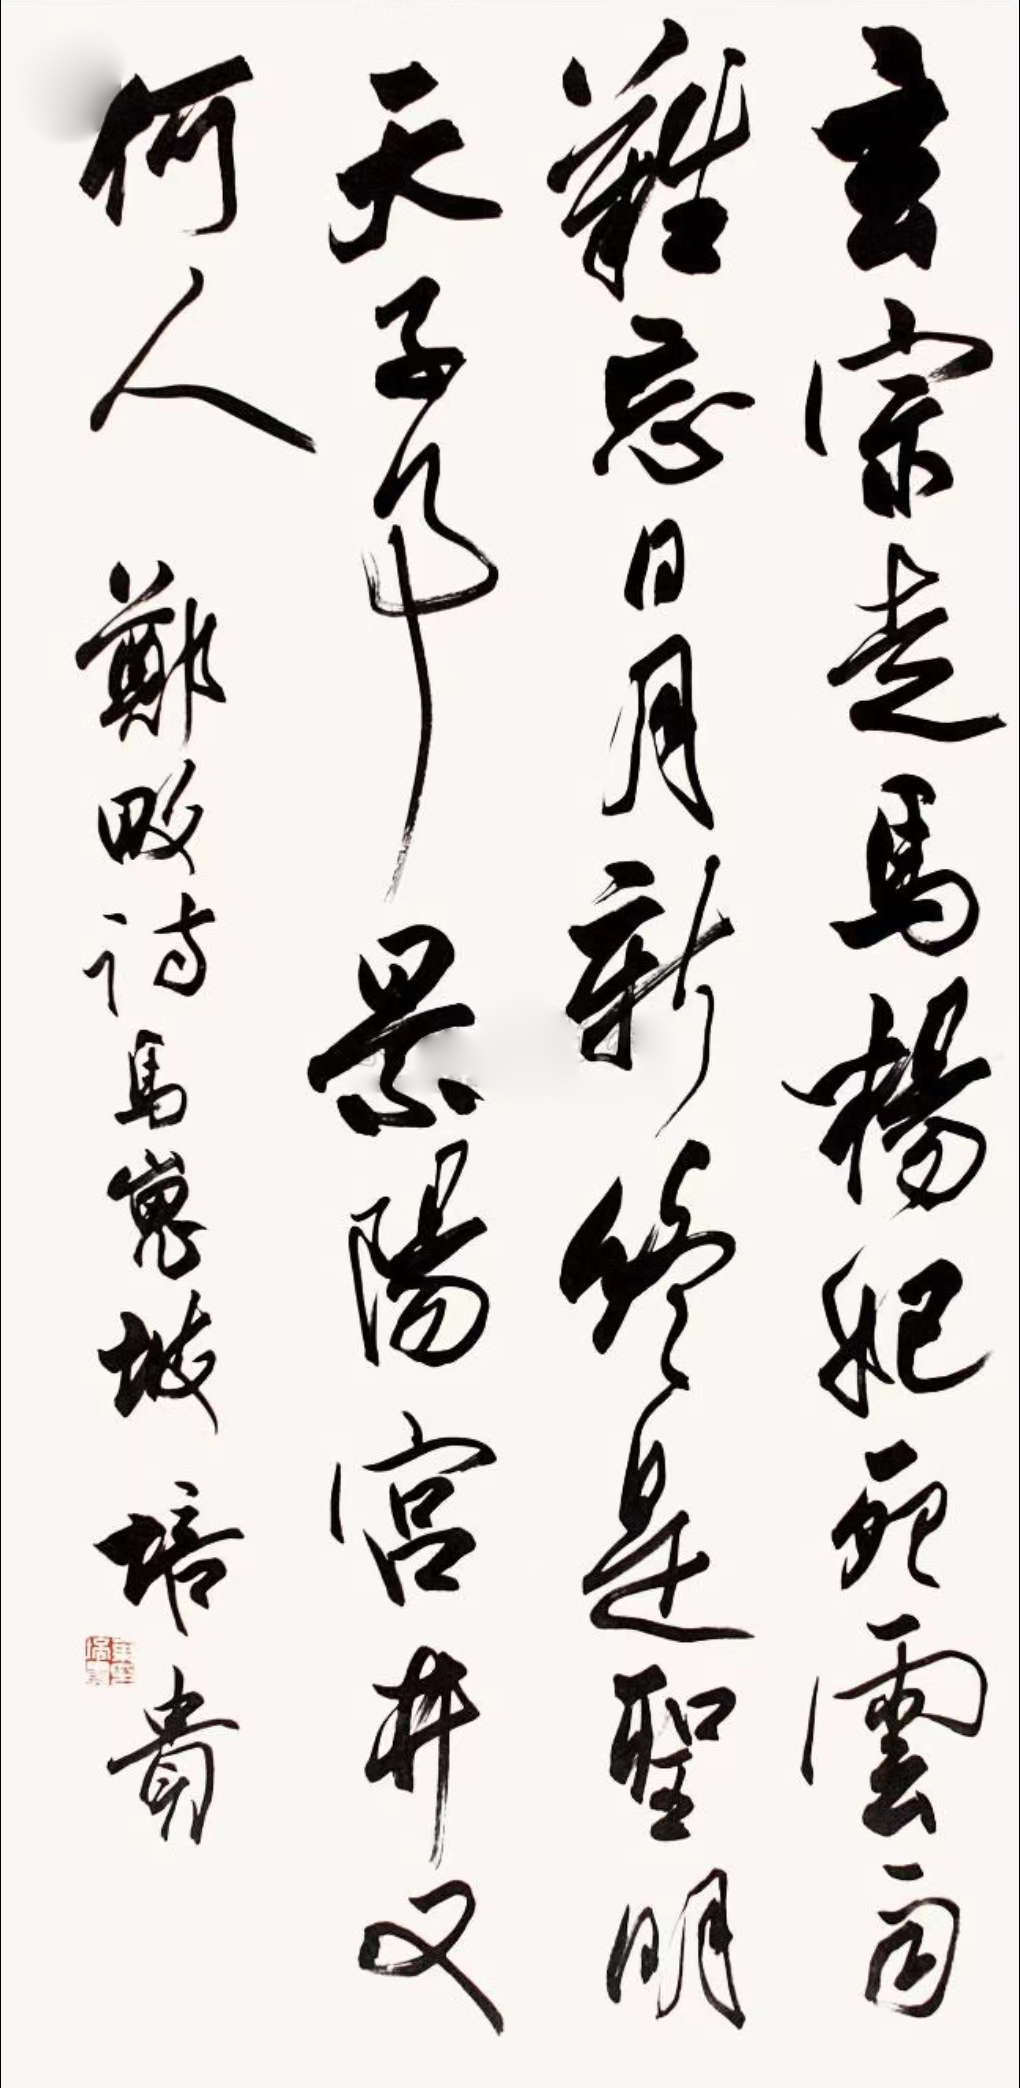 玄宗走馬楊妃死雲雨
難忘日月新終是聖明
天子事景陽宮井又
何人 鄭畋詩馬嵬坡 培貴